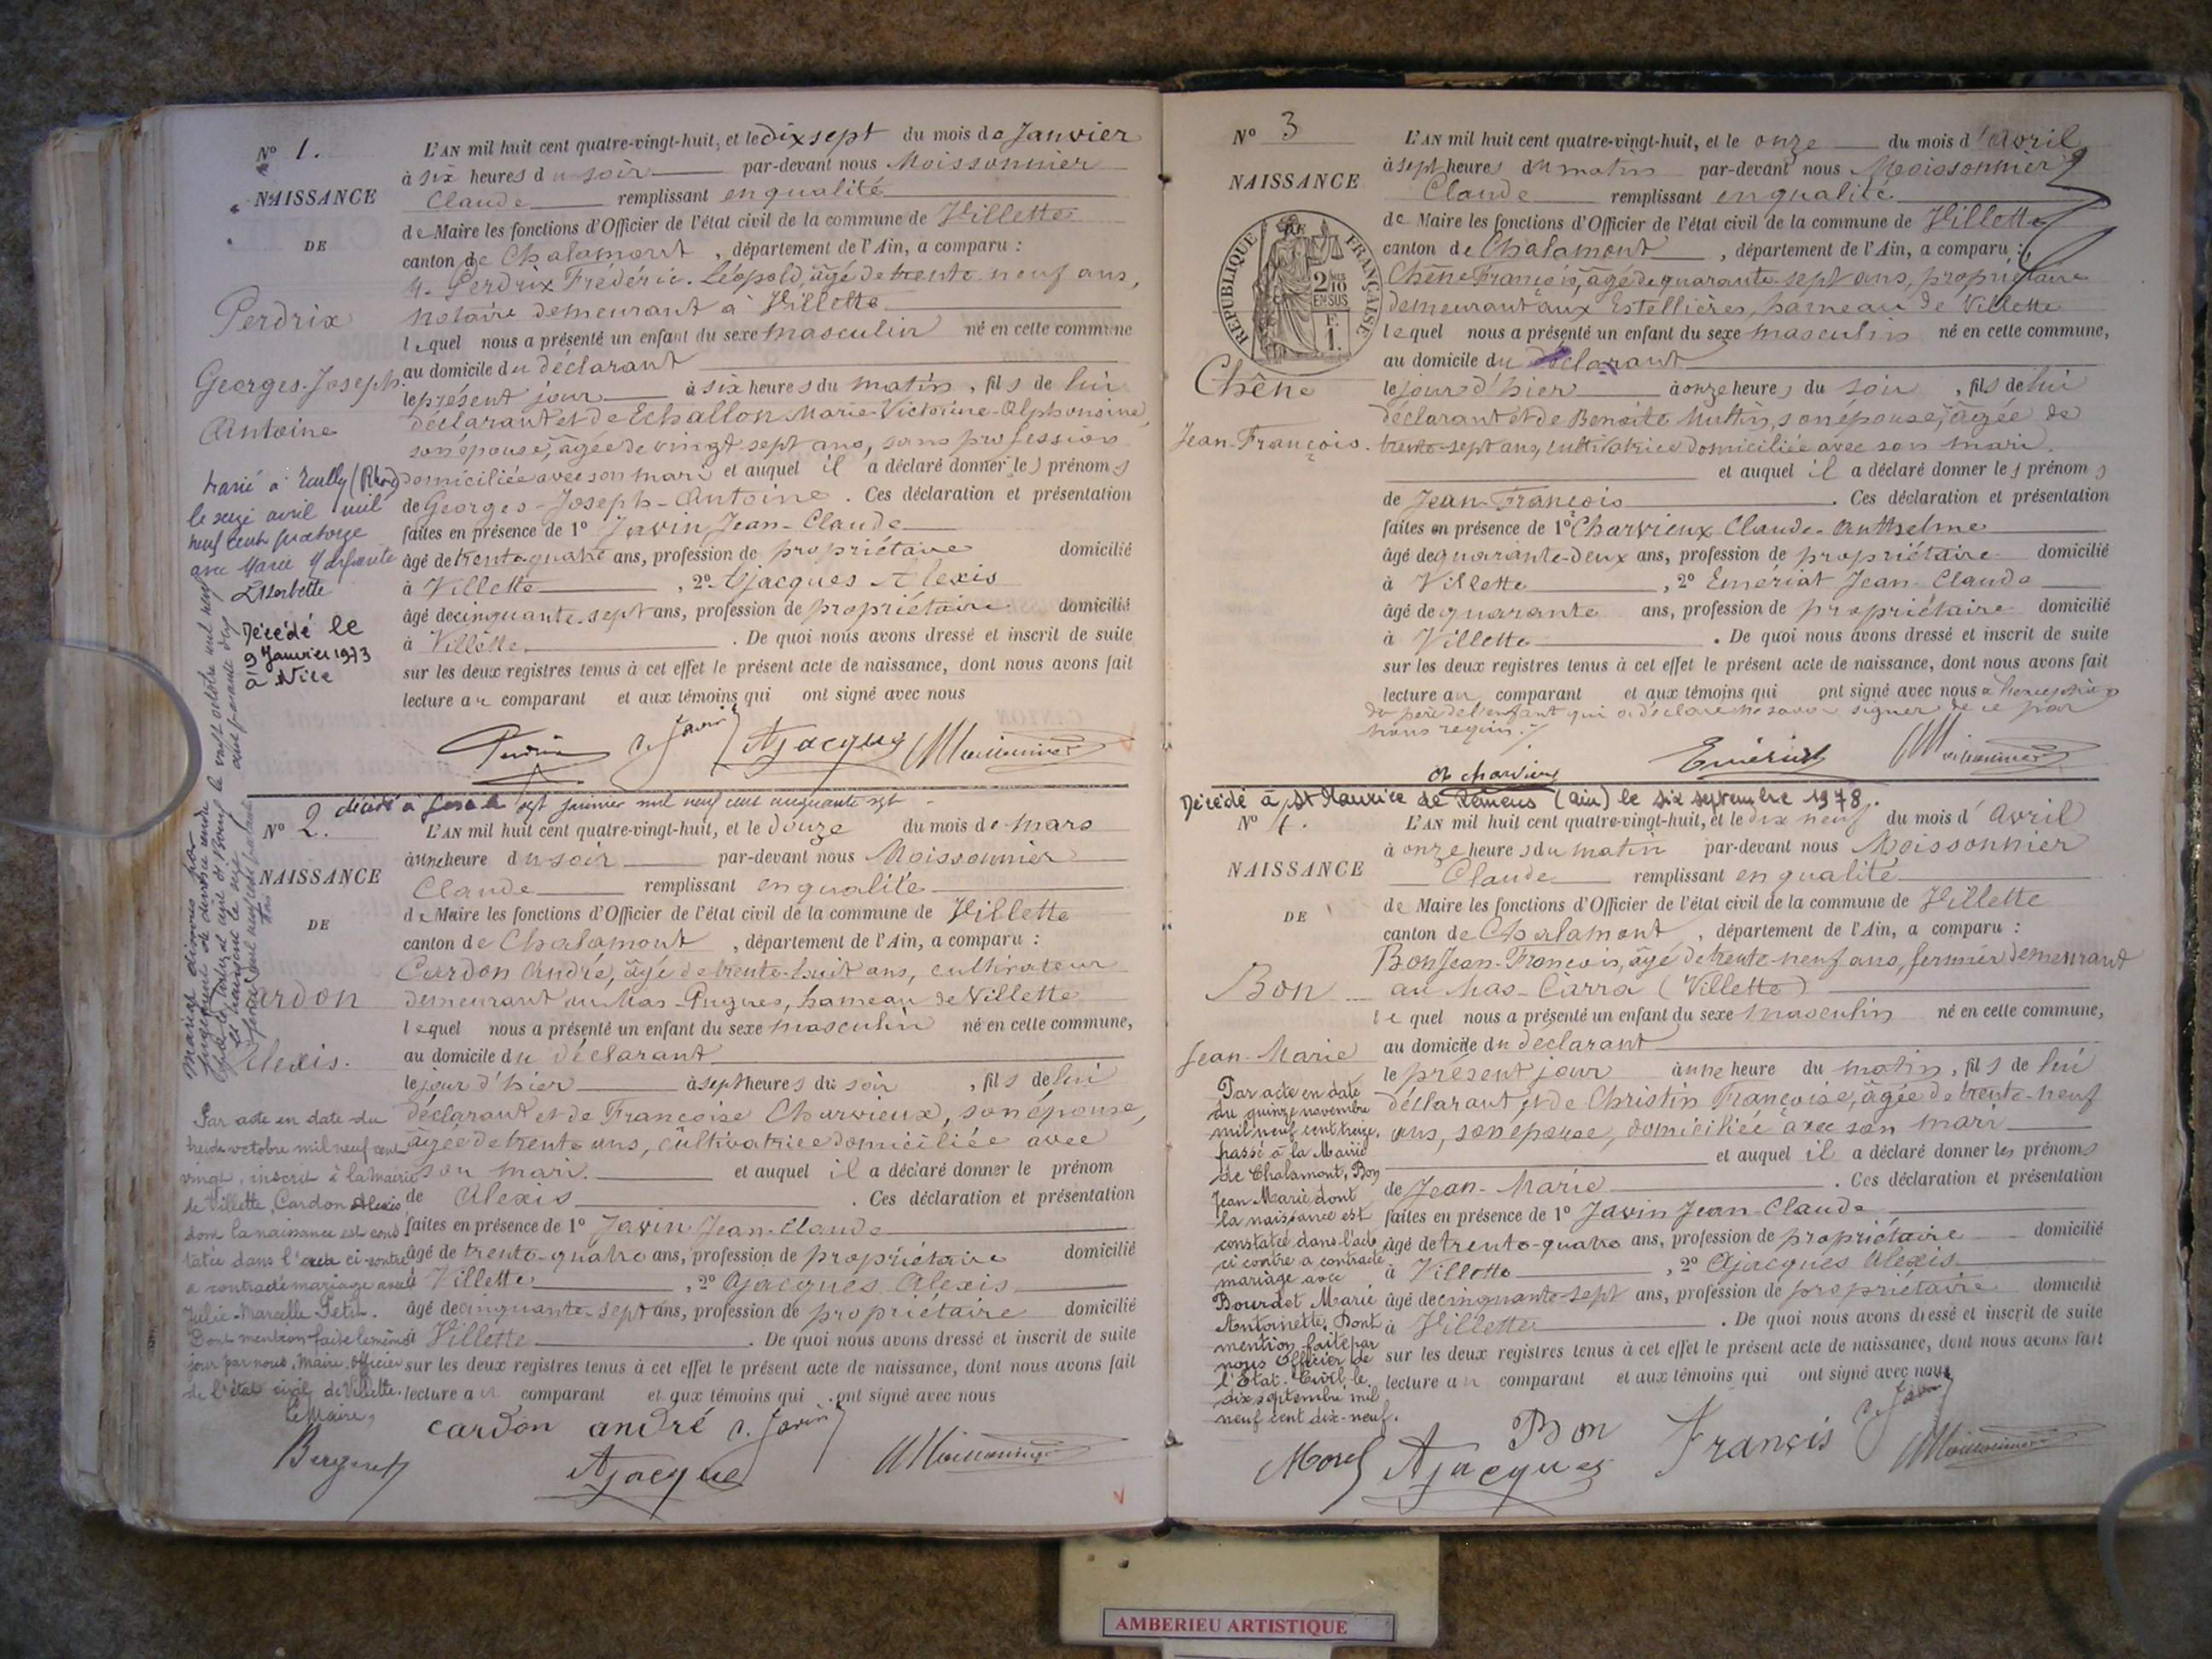 Nº 1.
NAISSANCE
DE
Perdrix
Georges-Joseph.
Antoine
marié à (Rhône)
le seize avril mil
neuf cent quatorze
avec Marie
Décédé le
9 Janvier 1973
à Nice
L'AN mil huit cent quatre-vingt-huit, et le dix sept du mois de Janvier
à six heures du soir par-devant nous Moissonnier
Claude remplissant en qualité
de Maire les fonctions d'Officier de l'état civil de la commune de Villette
canton de Chalamont, département de l'Ain, a comparu :
Perdrix Frédéric-Léopold, âgé de trente neuf ans,
notaire demeurant à Villette
lequel nous a présenté un enfant du sexe masculin né en cette commune
au domicile du déclarant
le présent jour à six heures du matin, fils de lui
déclarant et de Echallon Marie-Victorine-Alphonsine,
son épouse, âgée de vingt-sept ans, sans profession
domiciliée avec son mari et auquel il a déclaré donner les prénoms
de Georges-Joseph-Antoine. Ces déclaration et présentation
faites en présence de 1º Javin Jean-Claude
âgé de trente-quatre ans, profession de propriétaire domicilié
à Villette, 2º Ajacques Alexis
âgé de cinquante-sept ans, profession de propriétaire domicilié
à Villette. De quoi nous avons dressé et inscrit de suite
sur les deux registres tenus à cet effet le présent acte de naissance, dont nous avons fait
lecture au comparant et aux témoins qui ont signé avec nous
Perdrix C. Javin Ajacques Moissonnier
Nº 2.
décédé à sept janvier mil neuf cent cinquante sept
NAISSANCE
DE
Cardon
Alexis.
Par acte en date du
trente octobre mil neuf cent
vingt, inscrit à la mairie
de Villette, Cardon Alexis
dont la naissance est cons
tatée dans l'acte ci-contre
a contracté mariage avec
Julie-Marcelle Petit.
Dont mention faite le même
jour par nous, Maire, officier
de l'état civil de Villette.
Le Maire,
L'AN mil huit cent quatre-vingt-huit, et le douze du mois de mars
à une heure du soir par-devant nous Moissonnier
Claude remplissant en qualité
de Maire les fonctions d'Officier de l'état civil de la commune de Villette
canton de Chalamont, département de l'Ain, a comparu :
Cardon André, âgé de trente-huit ans, cultivateur
demeurant au Mas-Pugues, hameau de Villette
lequel nous a présenté un enfant du sexe masculin né en cette commune,
au domicile du déclarant
le jour d'hier à sept heures du soir, fils de lui
déclarant et de Françoise Charvieux, son épouse,
âgée de trente ans, cultivatrice domiciliée avec
son mari. et auquel il a déclaré donner le prénom
de Alexis. Ces déclaration et présentation
faites en présence de 1º Javin Jean-Claude
âgé de trente-quatre ans, profession de propriétaire domicilié
à Villette, 2º Ajacques Alexis
âgé de cinquante-sept ans, profession de propriétaire domicilié
à Villette. De quoi nous avons dressé et inscrit de suite
sur les deux registres tenus à cet effet le présent acte de naissance, dont nous avons fait
lecture au comparant et aux témoins qui ont signé avec nous
cardon andré C. Javin
Ajacques Moissonnier
Nº 3
NAISSANCE
RÉPUBLIQUE FRANÇAISE
2/10
EN SUS
F.
1.
Chêne
Jean-François.
L'AN mil huit cent quatre-vingt-huit, et le onze du mois d'Avril
à sept heures du matin par-devant nous Moissonnier
Claude remplissant en qualité
de Maire les fonctions d'Officier de l'état civil de la commune de Villette
canton de Chalamont, département de l'Ain, a comparu :
Chêne François, âgé de quarante sept ans, propriétaire
demeurant aux Estellières, hameau de Villette
lequel nous a présenté un enfant du sexe masculin né en cette commune,
au domicile du déclarant
le jour d'hier à onze heures du soir, fils de lui
déclarant et de Benoîte Muttin, son épouse, âgée de
trente-sept ans, cultivatrice domiciliée avec son mari.
et auquel il a déclaré donner les prénoms
de Jean-François. Ces déclaration et présentation
faites en présence de 1º Charvieux Claude-Anthelme
âgé de quarante-deux ans, profession de propriétaire domicilié
à Villette, 2º Emériat Jean-Claude
âgé de quarante ans, profession de propriétaire domicilié
à Villette. De quoi nous avons dressé et inscrit de suite
sur les deux registres tenus à cet effet le présent acte de naissance, dont nous avons fait
lecture au comparant et aux témoins qui ont signé avec nous à l'exception
du père de l'enfant qui a déclaré ne savoir signer de ce par
nous requis.
charvieux Emériat Moissonnier
Décédé à St Maurice de Rémens (ain) le six septembre 1978.
Nº 4.
NAISSANCE
DE
Bon
Jean-Marie
Par acte en date
du quinze novembre
mil neuf cent treize,
passé à la Mairie
de Chalamont, Bon
Jean Marie dont
la naissance est
constatée dans l'acte
ci contre a contracté
mariage avec
Bourdat Marie
Antoinette. Dont
mention faite par
nous Officier de
l'Etat-Civil le
dix septembre mil
neuf cent dix-neuf.
Morel
L'AN mil huit cent quatre-vingt-huit, et le dix neuf du mois d'Avril
à onze heures du matin par-devant nous Moissonnier
Claude remplissant en qualité
de Maire les fonctions d'Officier de l'état civil de la commune de Villette
canton de Chalamont, département de l'Ain, a comparu :
Bon Jean-François, âgé de trente-neuf ans, fermier demeurant
au Mas-Carra (Villette)
lequel nous a présenté un enfant du sexe masculin né en cette commune,
au domicile du déclarant
le présent jour à une heure du matin, fils de lui
déclarant et de Christin Françoise, âgée de trente-neuf
ans, son épouse, domiciliée avec son mari
et auquel il a déclaré donner les prénoms
de Jean-Marie. Ces déclaration et présentation
faites en présence de 1º Javin Jean-Claude
âgé de trente-quatre ans, profession de propriétaire domicilié
à Villette, 2º Ajacques Alexis
âgé de cinquante-sept ans, profession de propriétaire domicilié
à Villette. De quoi nous avons dressé et inscrit de suite
sur les deux registres tenus à cet effet le présent acte de naissance, dont nous avons fait
lecture au comparant et aux témoins qui ont signé avec nous
Bon Francis C. Javin
Ajacques Moissonnier
AMBERIEU ARTISTIQUE